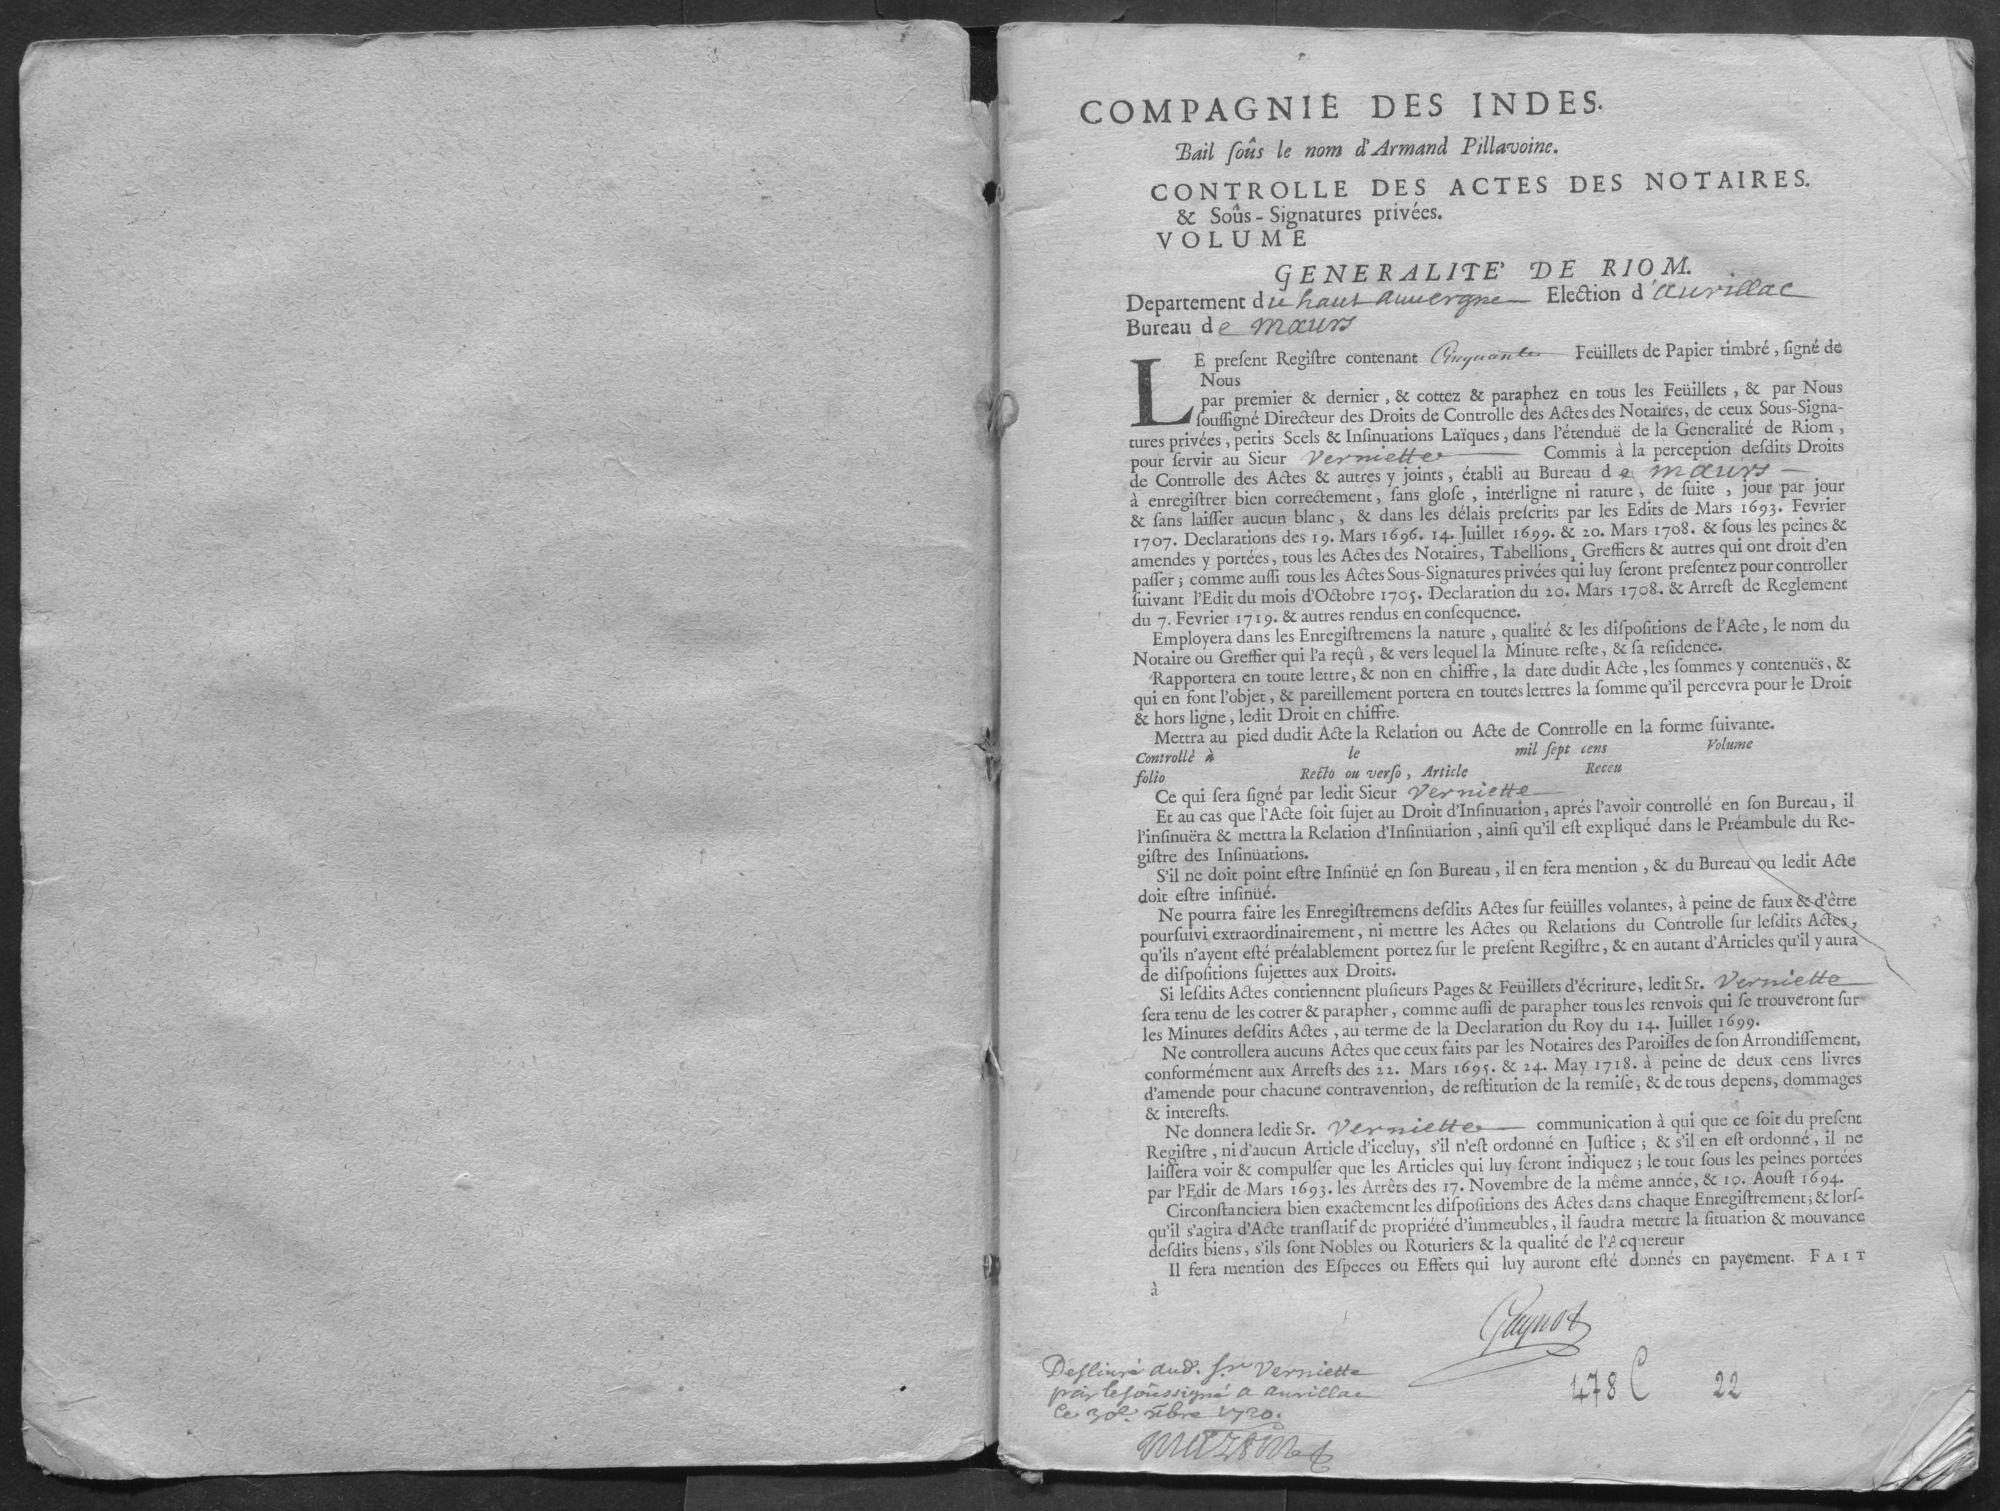 COMPAGNIE DES INDES.
Bail ſoûs le nom d'Armand Pillavoine.
CONTROLLE DES ACTES DES NOTAIRES.
& Soûs-Signatures privées.
VOLUME
GENERALITE' DE RIOM.
Departement du haut auvergne Election d'aurillac
Bureau de maurs
LE preſent Regiſtre contenant Cinquante Feüillets de Papier timbré, ſigné de
Nous
par premier & dernier, & cottez & paraphez en tous les Feüillets, & par Nous
ſouſſigné Directeur des Droits de Controlle des Actes des Notaires, de ceux Sous-Signa-
tures privées, petits Scels & Inſinuations Laïques, dans l'étenduë de la Generalité de Riom,
pour ſervir au Sieur Verniette Commis à la perception deſdits Droits
de Controlle des Actes & autres y joints, établi au Bureau de maurs
à enregiſtrer bien correctement, ſans gloſe, interligne ni rature, de ſuite, jour par jour
& ſans laiſſer aucun blanc, & dans les délais preſcrits par les Edits de Mars 1693. Fevrier
1707. Declarations des 19. Mars 1696. 14. Juillet 1699. & 20. Mars 1708. & ſous les peines &
amendes y portées, tous les Actes des Notaires, Tabellions, Greffiers & autres qui ont droit d'en
paſſer; comme auſſi tous les Actes Sous-Signatures privées qui luy ſeront preſentez pour controller
ſuivant l'Edit du mois d'Octobre 1705. Declaration du 20. Mars 1708. & Arreſt de Reglement
du 7. Fevrier 1719. & autres rendus en conſequence.
Employera dans les Enregiſtremens la nature, qualité & les diſpoſitions de l'Acte, le nom du
Notaire ou Greffier qui l'a reçû, & vers lequel la Minute reſte, & ſa reſidence.
Rapportera en toute lettre, & non en chiffre, la date dudit Acte, les ſommes y contenuës, &
qui en font l'objet, & pareillement portera en toutes lettres la ſomme qu'il percevra pour le Droit
& hors ligne, ledit Droit en chiffre.
Mettra au pied dudit Acte la Relation ou Acte de Controlle en la forme ſuivante.
Controllé à le mil ſept cens Volume
folio Recto ou verſo, Article Receu
Ce qui ſera ſigné par ledit Sieur Verniette
Et au cas que l'Acte ſoit ſujet au Droit d'Inſinuation, aprés l'avoir controllé en ſon Bureau, il
l'inſinuëra & mettra la Relation d'Inſinüation, ainſi qu'il eſt expliqué dans le Préambule du Re-
giſtre des Inſinüations.
S'il ne doit point eſtre Inſinüé en ſon Bureau, il en fera mention, & du Bureau ou ledit Acte
doit eſtre inſinüé.
Ne pourra faire les Enregiſtremens deſdits Actes ſur feüilles volantes, à peine de faux & d'être
pourſuivi extraordinairement, ni mettre les Actes ou Relations du Controlle ſur leſdits Actes,
qu'ils n'ayent eſté préalablement portez ſur le preſent Regiſtre, & en autant d'Articles qu'il y aura
de diſpoſitions ſujettes aux Droits.
Si leſdits Actes contiennent pluſieurs Pages & Feüillets d'écriture, ledit Sr. Verniette
ſera tenu de les cotter & parapher, comme auſſi de parapher tous les renvois qui ſe trouveront ſur
les Minutes deſdits Actes, au terme de la Declaration du Roy du 14. Juillet 1699.
Ne controllera aucuns Actes que ceux faits par les Notaires des Paroiſſes de ſon Arrondiſſement,
conformément aux Arreſts des 22. Mars 1695. & 24. May 1718. à peine de deux cens livres
d'amende pour chacune contravention, de reſtitution de la remiſe, & de tous depens, dommages
& intereſts.
Ne donnera ledit Sr. Verniette communication à qui que ce ſoit du preſent
Regiſtre, ni d'aucun Article d'iceluy, s'il n'eſt ordonné en Juſtice; & s'il en eſt ordonné, il ne
laiſſera voir & compulſer que les Articles qui luy ſeront indiquez; le tout ſous les peines portées
par l'Edit de Mars 1693. les Arrêts des 17. Novembre de la même année, & 10. Aouſt 1694.
Circonſtanciera bien exactement les diſpoſitions des Actes dans chaque Enregiſtrement; & lorſ-
qu'il s'agira d'Acte tranſlatif de propriété d'immeubles, il faudra mettre la ſituation & mouvance
deſdits biens, s'ils ſont Nobles ou Roturiers & la qualité de l'Acquereur
Il fera mention des Eſpeces ou Effets qui luy auront eſté donnés en payement. FAIT
à
Deſliuré aud. Sr Verniette
par le soussigné a aurillac
Ce 30e. 1720.
478 C 22